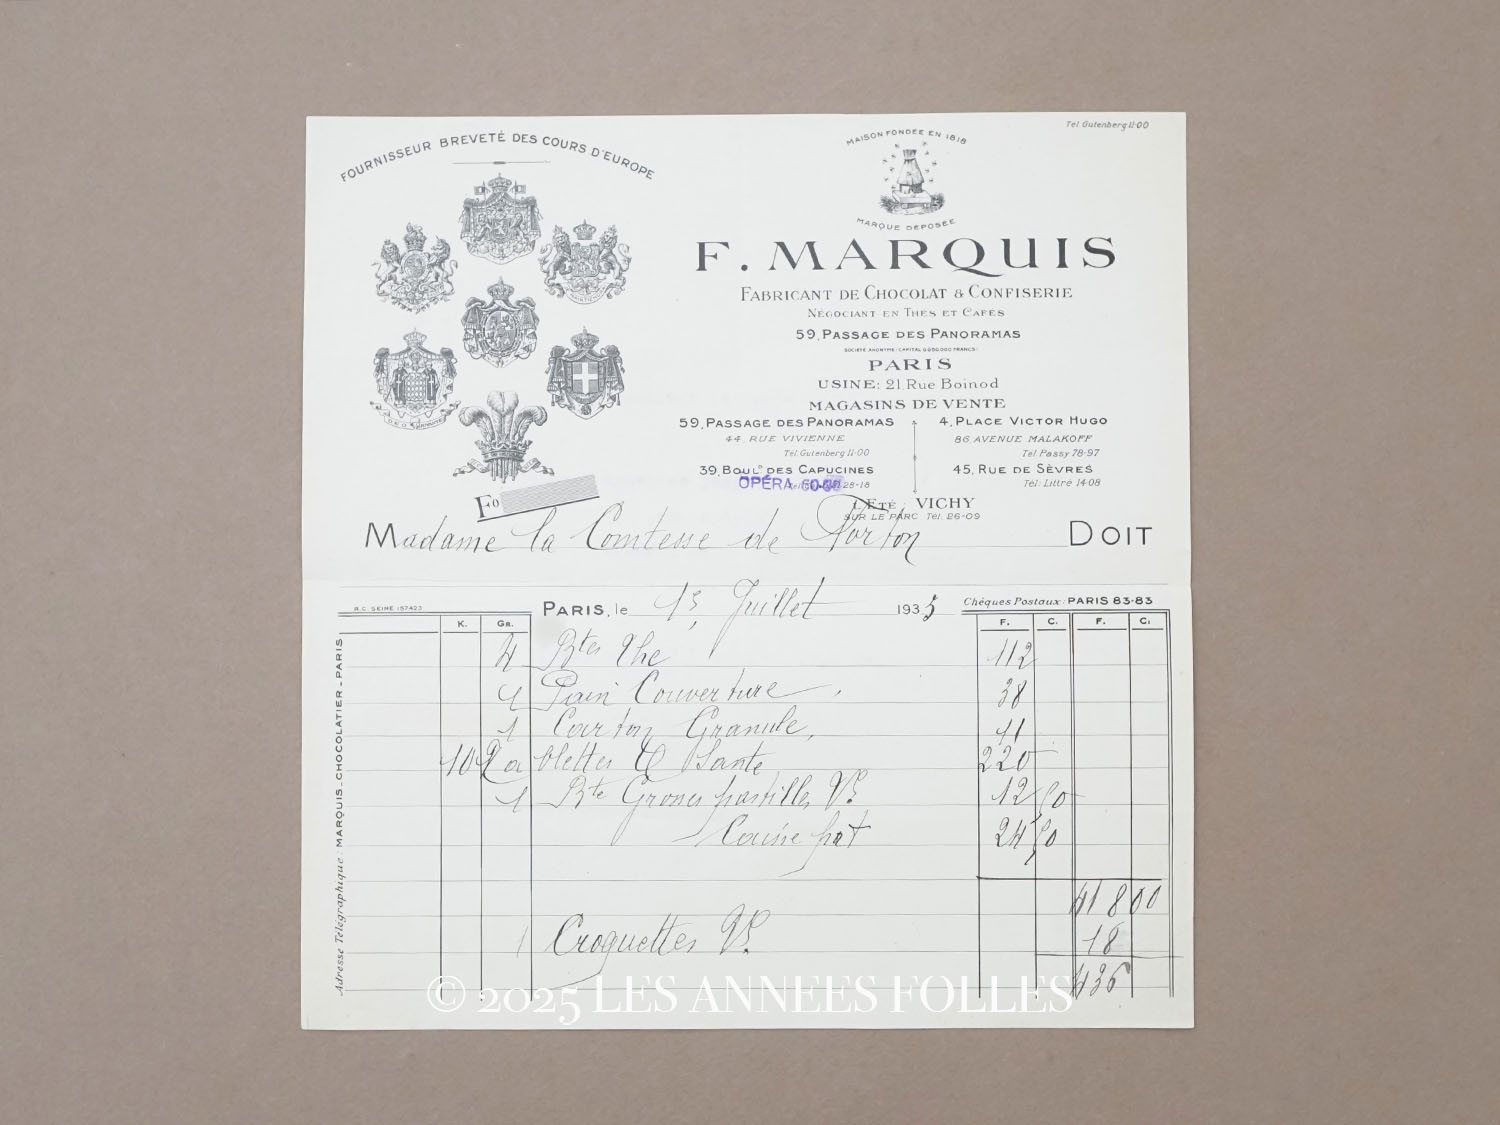 Tél. Gutenberg 11-00
FOURNISSEUR BREVETÉ DES COURS D'EUROPE
MAISON FONDÉE EN 1818
MARQUE DÉPOSÉE
F. MARQUIS
FABRICANT DE CHOCOLAT & CONFISERIE
NÉGOCIANT EN THÉS ET CAFÉS
59, PASSAGE DES PANORAMAS
PARIS
USINE: 21 Rue Boinod
MAGASINS DE VENTE
59, PASSAGE DES PANORAMAS
44, RUE VIVIENNE
Tél. Gutenberg 11-00
39, BOULD DES CAPUCINES
OPÉRA
28-18
4, PLACE VICTOR HUGO
86, AVENUE MALAKOFF
Tél. Passy 78-97
45, RUE DE SÈVRES
Tél: Littré 14-08
L'ÉTÉ: VICHY
SUR LE PARC Tél. 26-09
Fo
Madame la Comtesse de DOIT
R.C. SEINE 157423
PARIS, le 13 Juillet 1935
Chèques Postaux: PARIS 83-83
K. GR. F. C. F. C.
4 Btes Thé 112
1 Pain Couverture 38
1 Carton Granulé 11
10 Santé 220
1 Bte pastilles 12 50
24 50
418 00
1 Croquettes 18
436
Adresse Télégraphique: MARQUIS-CHOCOLATIER-PARIS
© 2025 LES ANNEES FOLLES